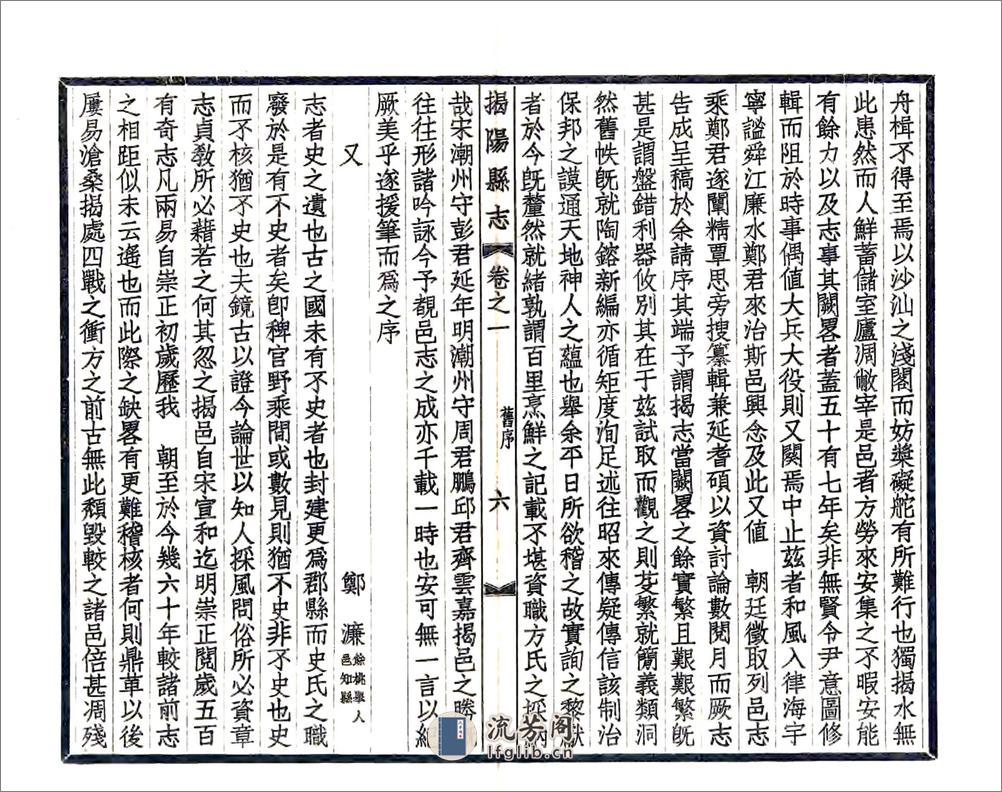 舟楫不得至焉以沙汕之淺閣而妨槳礙舵有所難行也獨揭水無
此患然而人鮮蓄儲室廬凋敝宰是邑者方勞來安集之不暇安能
有餘力以及志事其闕畧者蓋五十有七年矣非無賢令尹意圖修
輯而阻於時事偶值大兵大役則又闕焉中止茲者和風入律海宇
寧謐舜江廉水鄭君來治斯邑興念及此又值　朝廷徵取列邑志
乘鄭君遂闡精覃思旁搜纂輯兼延耆碩以資討論數閱月而厥志
告成呈稿於余請序其端予謂揭志當闕畧之餘實繁且艱艱繁旣
甚是謂盤錯利器攸別其在于茲試取而觀之則芟繁就簡義類洞
然舊帙旣就陶鎔新編亦循矩度洵足述往昭來傳疑傳信該制治
保邦之謨通天地神人之蘊也舉余平日所欲稽之故實詢之黎獻
者於今旣釐然就緒孰謂百里烹鮮之記載不堪資職方氏之採
揭陽縣志　卷之一　舊序　六
哉宋潮州守彭君延年明潮州守周君鵬邱君齊雲嘉揭邑之勝
往往形諸吟詠今予覩邑志之成亦千載一時也安可無一言以
厥美乎遂援筆而爲之序
又　鄭濂　餘姚舉人邑知縣
志者史之遺也古之國未有不史者也封建更爲郡縣而史氏之職
廢於是有不史者矣卽稗官野乘間或數見則猶不史非不史也史
而不核猶不史也夫鏡古以證今論世以知人採風問俗所必資章
志貞敎所必藉若之何其忽之揭邑自宋宣和迄明崇正閱歲五百
有奇志凡兩易自崇正初歲歷我　朝至於今幾六十年較諸前志
之相距似未云遙也而此際之缺畧有更難稽核者何則鼎革以後
屢易滄桑揭處四戰之衝方之前古無此頹毀較之諸邑倍甚凋殘
流芳阁
lfglib.cn